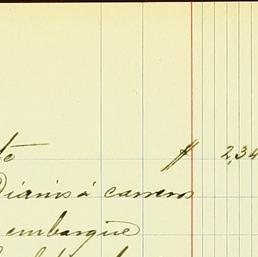 to $ 2,34
Diarios á carreros
embarque